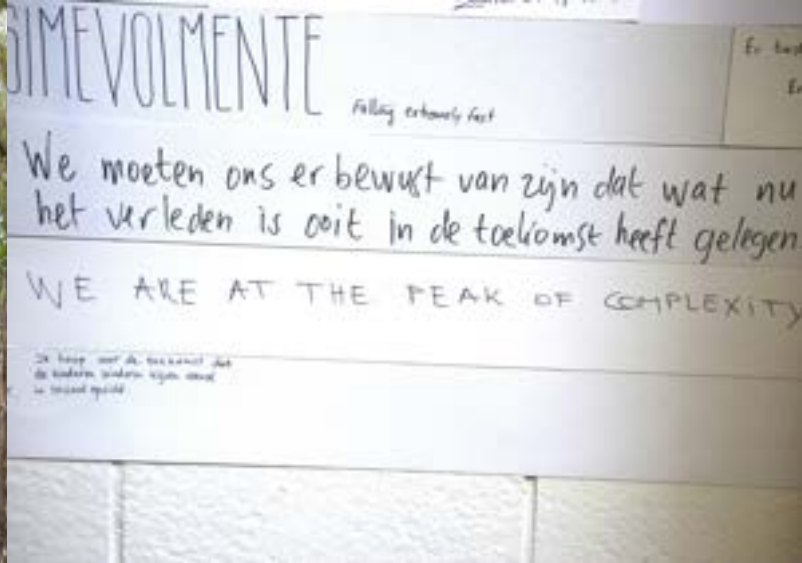 SIMEVOLMENTE
Falling extremely fast
We moeten ons er bewust van zijn dat wat nu
het verleden is ooit in de toekomst heeft gelegen
WE ARE AT THE PEAK OF COMPLEXITY
Ik hoop voor de toekomst dat
de kinderen